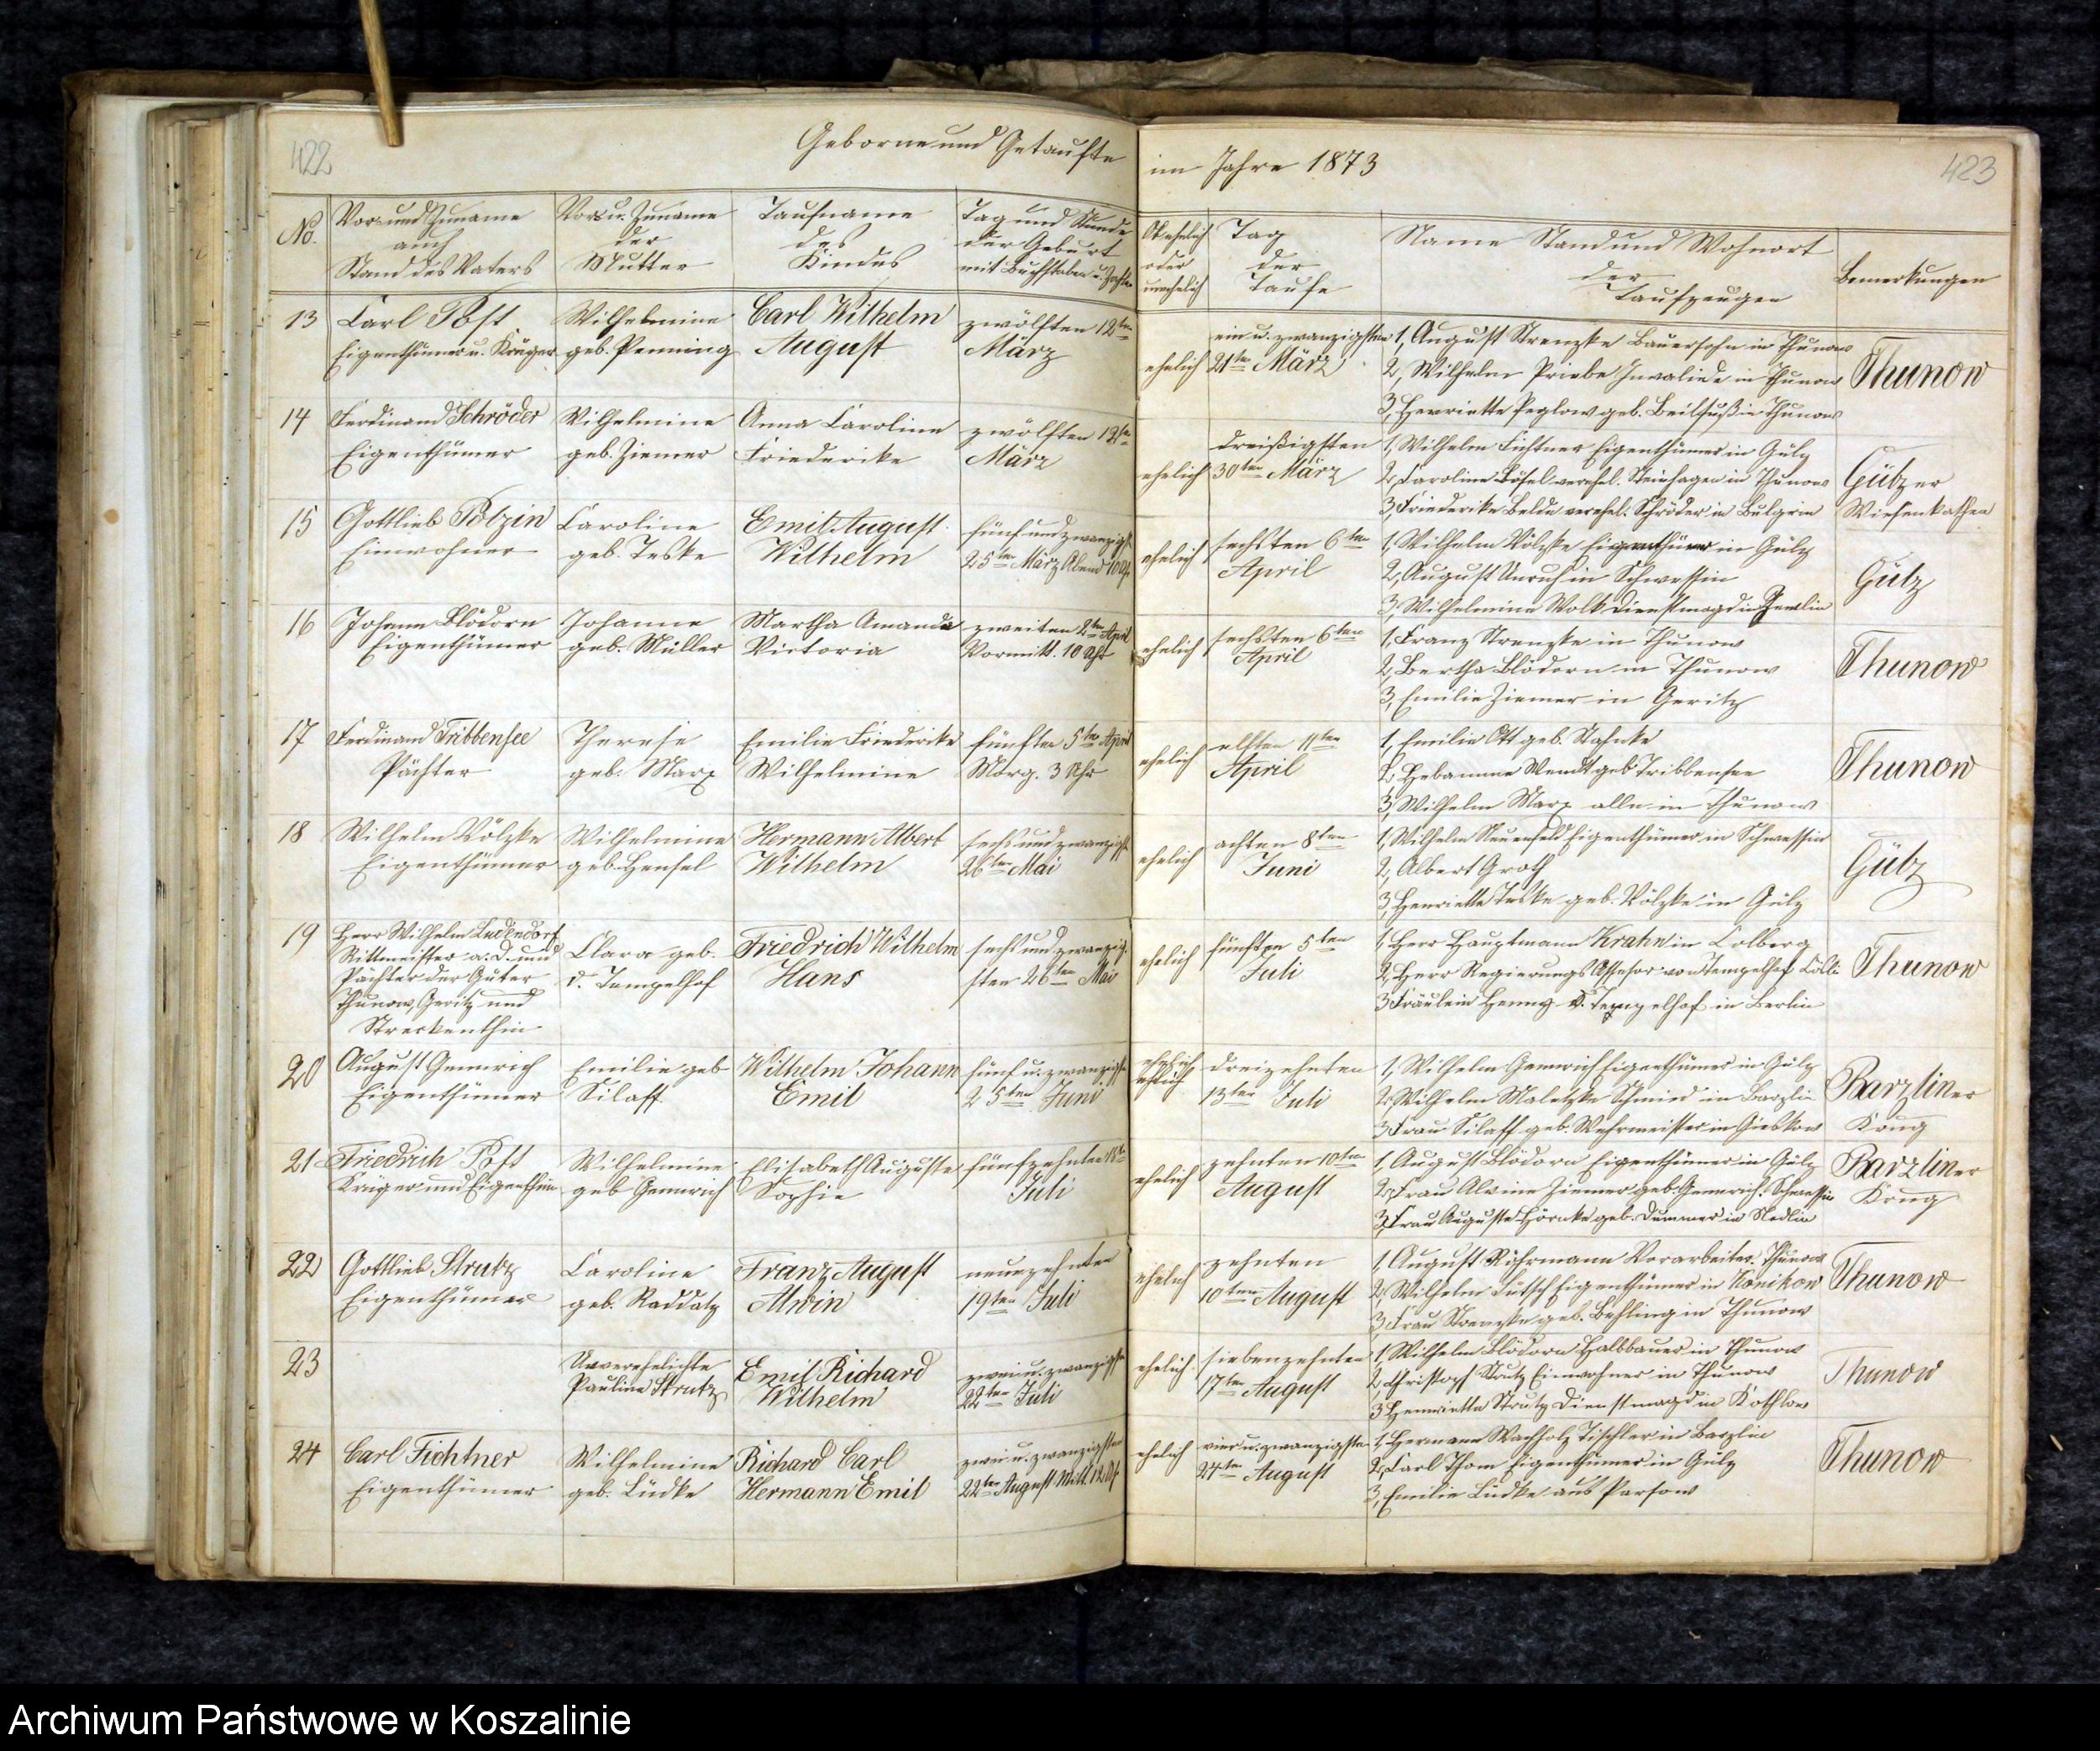 422
Geborne und Getaufte
im Jahre 1873
423
No.
Vor- und Zuname
auch
Stand des Vaters
Vor- u. Zuname
der
Mutter
Taufname
des
Kindes
Tag und Stunde
der Geburt
mit Buchstaben u.
Ob ehelich
oder
unehelich
Tag
der
Taufe
Name Stand und Wohnort
der
Taufzeugen
Bemerkungen
13
Carl Post
Eigenthümer u. Krüger
Wilhelmine
geb. Penning
Carl Wilhelm
August
zwölften 12ten
März
ehelich
ein u. zwanzigsten
21ten März
1, August Strenzke Bauersohn in Thunow
2, Wilhelm Priebe Invalide in Thunow
3, Henriette Peglow geb. Beilfuß in Thunow
Thunow
14
Ferdinand Schröder
Eigenthümer
Wilhelmine
geb. Ziemer
Anna Caroline
Friederike
zwölften 12ten
März
ehelich
dreißigsten
30ten März
1, Wilhelm Fichtner Eigenthümer in Gülz
2, Caroline verehel. Steinhagen in Thunow
3, Friederike verehel. Schröder in Bulgrin
Gülzer
Wiesenkathen
15
Gottlieb Polzin
Einwohner
Caroline
geb. Teske
Emil August
Wilhelm
fünf und zwanzigst
25ten März Abend 10 Uhr
ehelich
sechsten 6ten
April
1, Wilhelm Völzke Eigenthümer in Gülz
2, August Unruh in Schwessin
3, Wilhelmine Wolk Dienstmagd in
Gülz
16
Johann Blödorn
Eigenthümer
Johanne
geb. Müller
Martha Amanda
Victoria
zweiten 2ten April
Vormitt. 10 Uhr
ehelich
sechsten 6ten
April
1, Franz Strenzke in Thunow
2, Bertha Blödorn in Thunow
3, Emilie Ziemer in Geritz
Thunow
17
Ferdinand Tribbensee
Pächter
Therese
geb. Marx
Emilie Friederike
Wilhelmine
fünften 5ten April
Morg. 3 Uhr
ehelich
elften 11ten
April
1, Emilie Ott geb. Stahnke
2, Hebamme Wendt geb Tribbensee
3, Wilhelm Marx alle in Thunow
Thunow
18
Wilhelm Völzke
Eigenthümer
Wilhelmine
geb. Hensel
Hermann Albert
Wilhelm
sechs und zwanzigst
26ten Mai
ehelich
achten 8ten
Juni
1, Wilhelm Neuenfeld Eigenthümer in Schwessin
2, Albert Groth
3, Henriette Teske geb. Völzke in Gülz
Gülz
19
Herr Wilhelm Ludendorf
Rittmeister a. D. und
Pächter der Güter
Thunow, Geritz und
Streckenthin
Clara geb.
v. Tempelhof
Friedrich Wilhelm
Hans
sechs und zwanzig-
sten 26ten Mai
ehelich
fünften 5ten
Juli
1, Herr Hauptmann Krahn in Colberg
2, Herr Regierungs Assessor von Tempelhof
3, Fräulein Henny v. Tempelhof in Berlin
Thunow
20
August Gennrich
Eigenthümer
Emilie geb
Silaff
Wilhelm Johann
Emil
fünf u. zwanzigst
25ten Juni
ehelich
ehelich
dreizehnten
13ten Juli
1, Wilhelm Gennrich Eigenthümer in Gülz
2, Wilhelm Maletzke Schmied in Barzlin
3, Frau Silaff geb. Wehrmeister in Gieskow
Barzliner
Krug
21
Friedrich Post
Krüger und Eigenthüm
Wilhelmine
geb Gennrich
Elisabeth Auguste
Sophie
fünfzehnten
Juli
ehelich
zehnten 10ten
August
1, August Blödorn Eigenthümer in Gülz
2, Frau Alwine Ziemer geb. Gennrich. Schwessin
3, Frau Auguste geb. Dummer in Nedlin
Barzliner
Krug
22
Gottlieb Strutz
Eigenthümer
Caroline
geb. Raddatz
Franz August
Alwin
neunzehnten
19ten Juli
ehelich
zehnten
10ten August
1, August Röhrmann Vorarbeiter. Thunow
2, Wilhelm Eigenthümer in Konikow
3, Frau Strenzke geb. Behling in Thunow
Thunow
23
Unverehelichte
Pauline Strutz
Emil Richard
Wilhelm
zwei u. zwanzigste
22ten Juli
ehelich
siebenzehnten
17ten August
1, Wilhelm Blödorn Halbbauer in Thunow
2, Christoph Strutz Einwohner in Thunow
3, Henriette Strutz Dienstmagd in Kothlow
Thunow
24
Carl Fichtner
Eigenthümer
Wilhelmine
geb. Lüdke
Richard Carl
Hermann Emil
zwei u. zwanzigsten
22ten August Mitt. 12 Uhr
ehelich
vier u. zwanzigsten
24ten August
1, Hermann Wachholz Tischler in Barzlin
2, Carl Thom Eigenthümer in Gülz
3, Emilie Lüdke aus Parsow
Thunow
Archiwum Państwowe w Koszalinie